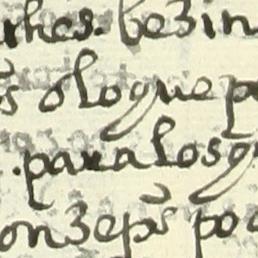 rhes. bezin
s o logue p
. para los q
onzeps po